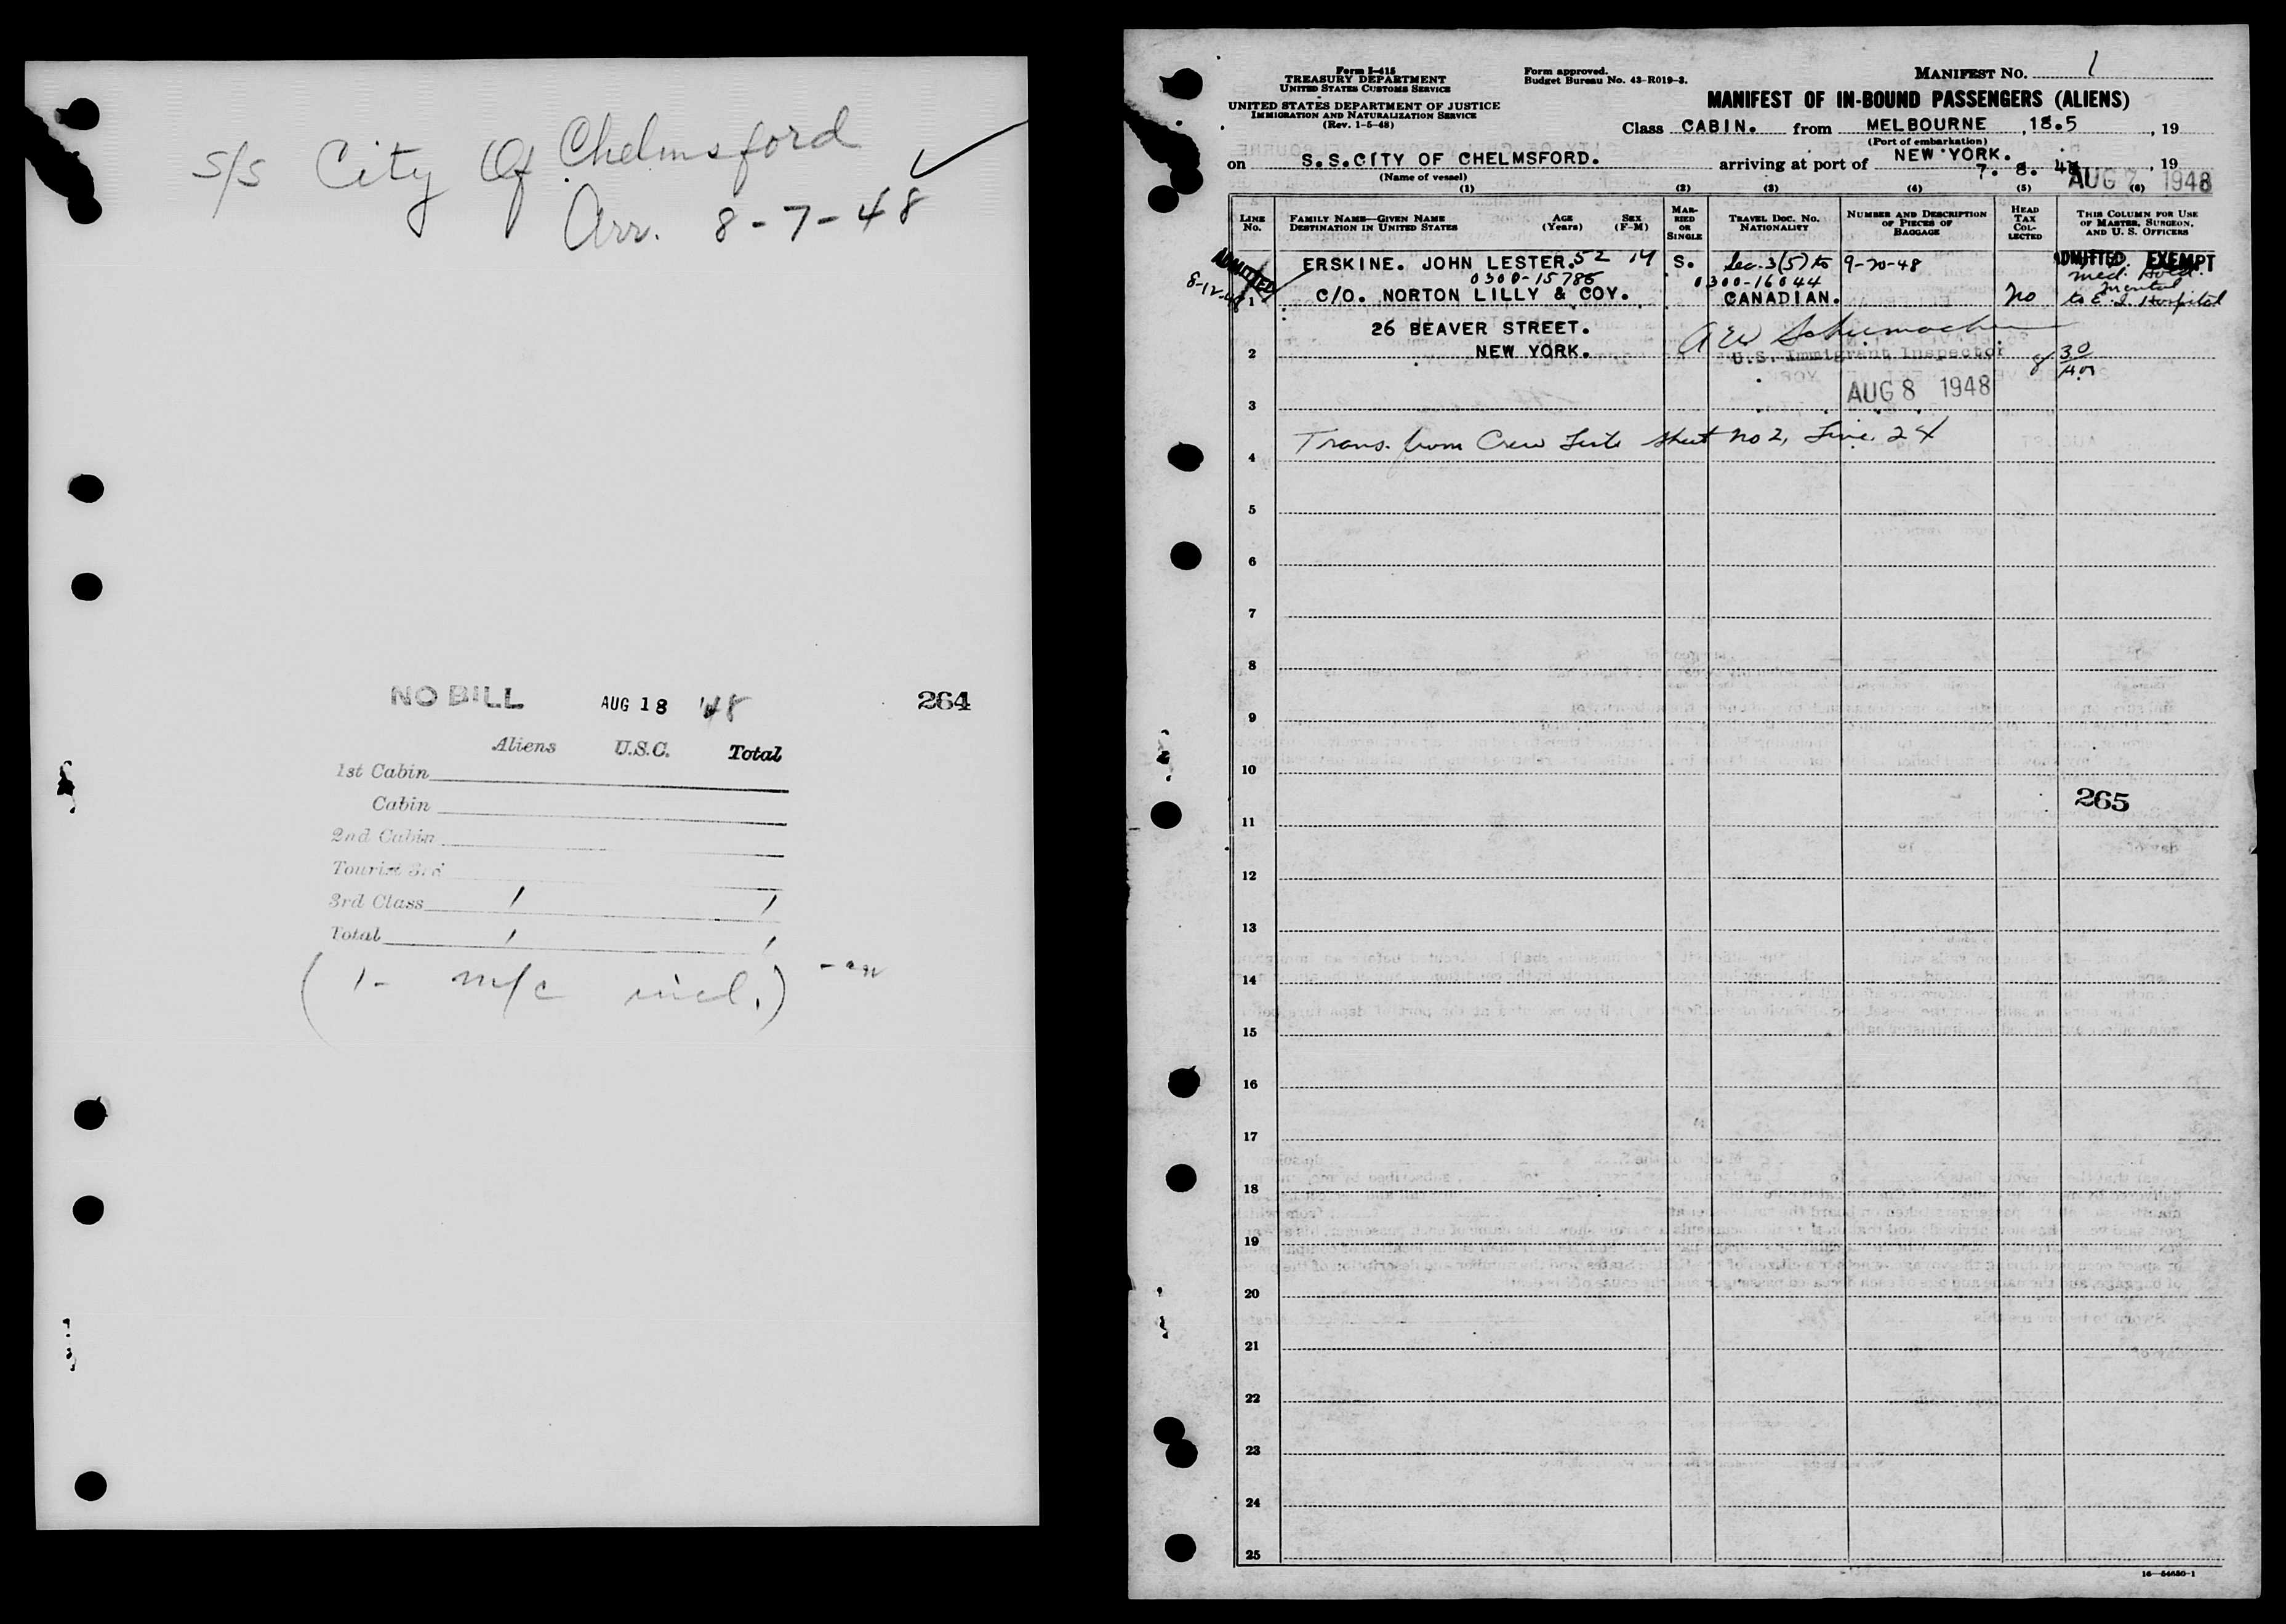 S/S City Of Chelmsford
Arr. 8-7-48
NO BILL AUG 18 '48 264
Aliens U.S.C. Total
1st Cabin
Cabin
2nd Cabin
Tourist 3rd
3rd Class 1 1
Total 1 1
(1- m/c incl.)
Form I-415
TREASURY DEPARTMENT
UNITED STATES CUSTOMS SERVICE
UNITED STATES DEPARTMENT OF JUSTICE
IMMIGRATION AND NATURALIZATION SERVICE
(Rev. 1-5-48)
Form approved.
Budget Bureau No. 43-R019-3.
MANIFEST NO. 1
MANIFEST OF IN-BOUND PASSENGERS (ALIENS)
Class CABIN. from MELBOURNE , 18.5 , 19
(Port of embarkation)
on S.S.CITY OF CHELMSFORD. arriving at port of NEW YORK. 7. 8. 48 , 19
(Name of vessel)
AUG 7 1948
(1) (2) (3) (4) (5) (6)
LINE No.
FAMILY NAME—GIVEN NAME AGE (Years) SEX (F-M)
DESTINATION IN UNITED STATES
MARRIED OR SINGLE
TRAVEL DOC. NO. NATIONALITY
NUMBER AND DESCRIPTION OF PIECES OF BAGGAGE
HEAD TAX COLLECTED
THIS COLUMN FOR USE OF MASTER, SURGEON, AND U. S. OFFICERS
ADMITTED
8-12-48
ERSKINE. JOHN LESTER. 52 M S. Sec. 3(5) to 9-20-48 ADMITTED EXEMPT
0300-15786 0300-16044 Med. Hold.
Mental
1 C/O. NORTON LILLY & COY. CANADIAN. No to E. I. Hospital
26 BEAVER STREET. A W Schumacher
2 NEW YORK. U.S. Immigrant Inspector
3 AUG 8 1948
Trans. from Crew List sheet no 2, Line 24
4
5
6
7
8
9
10
265
11
12
13
14
15
16
17
18
19
20
21
22
23
24
25
16—54650-1